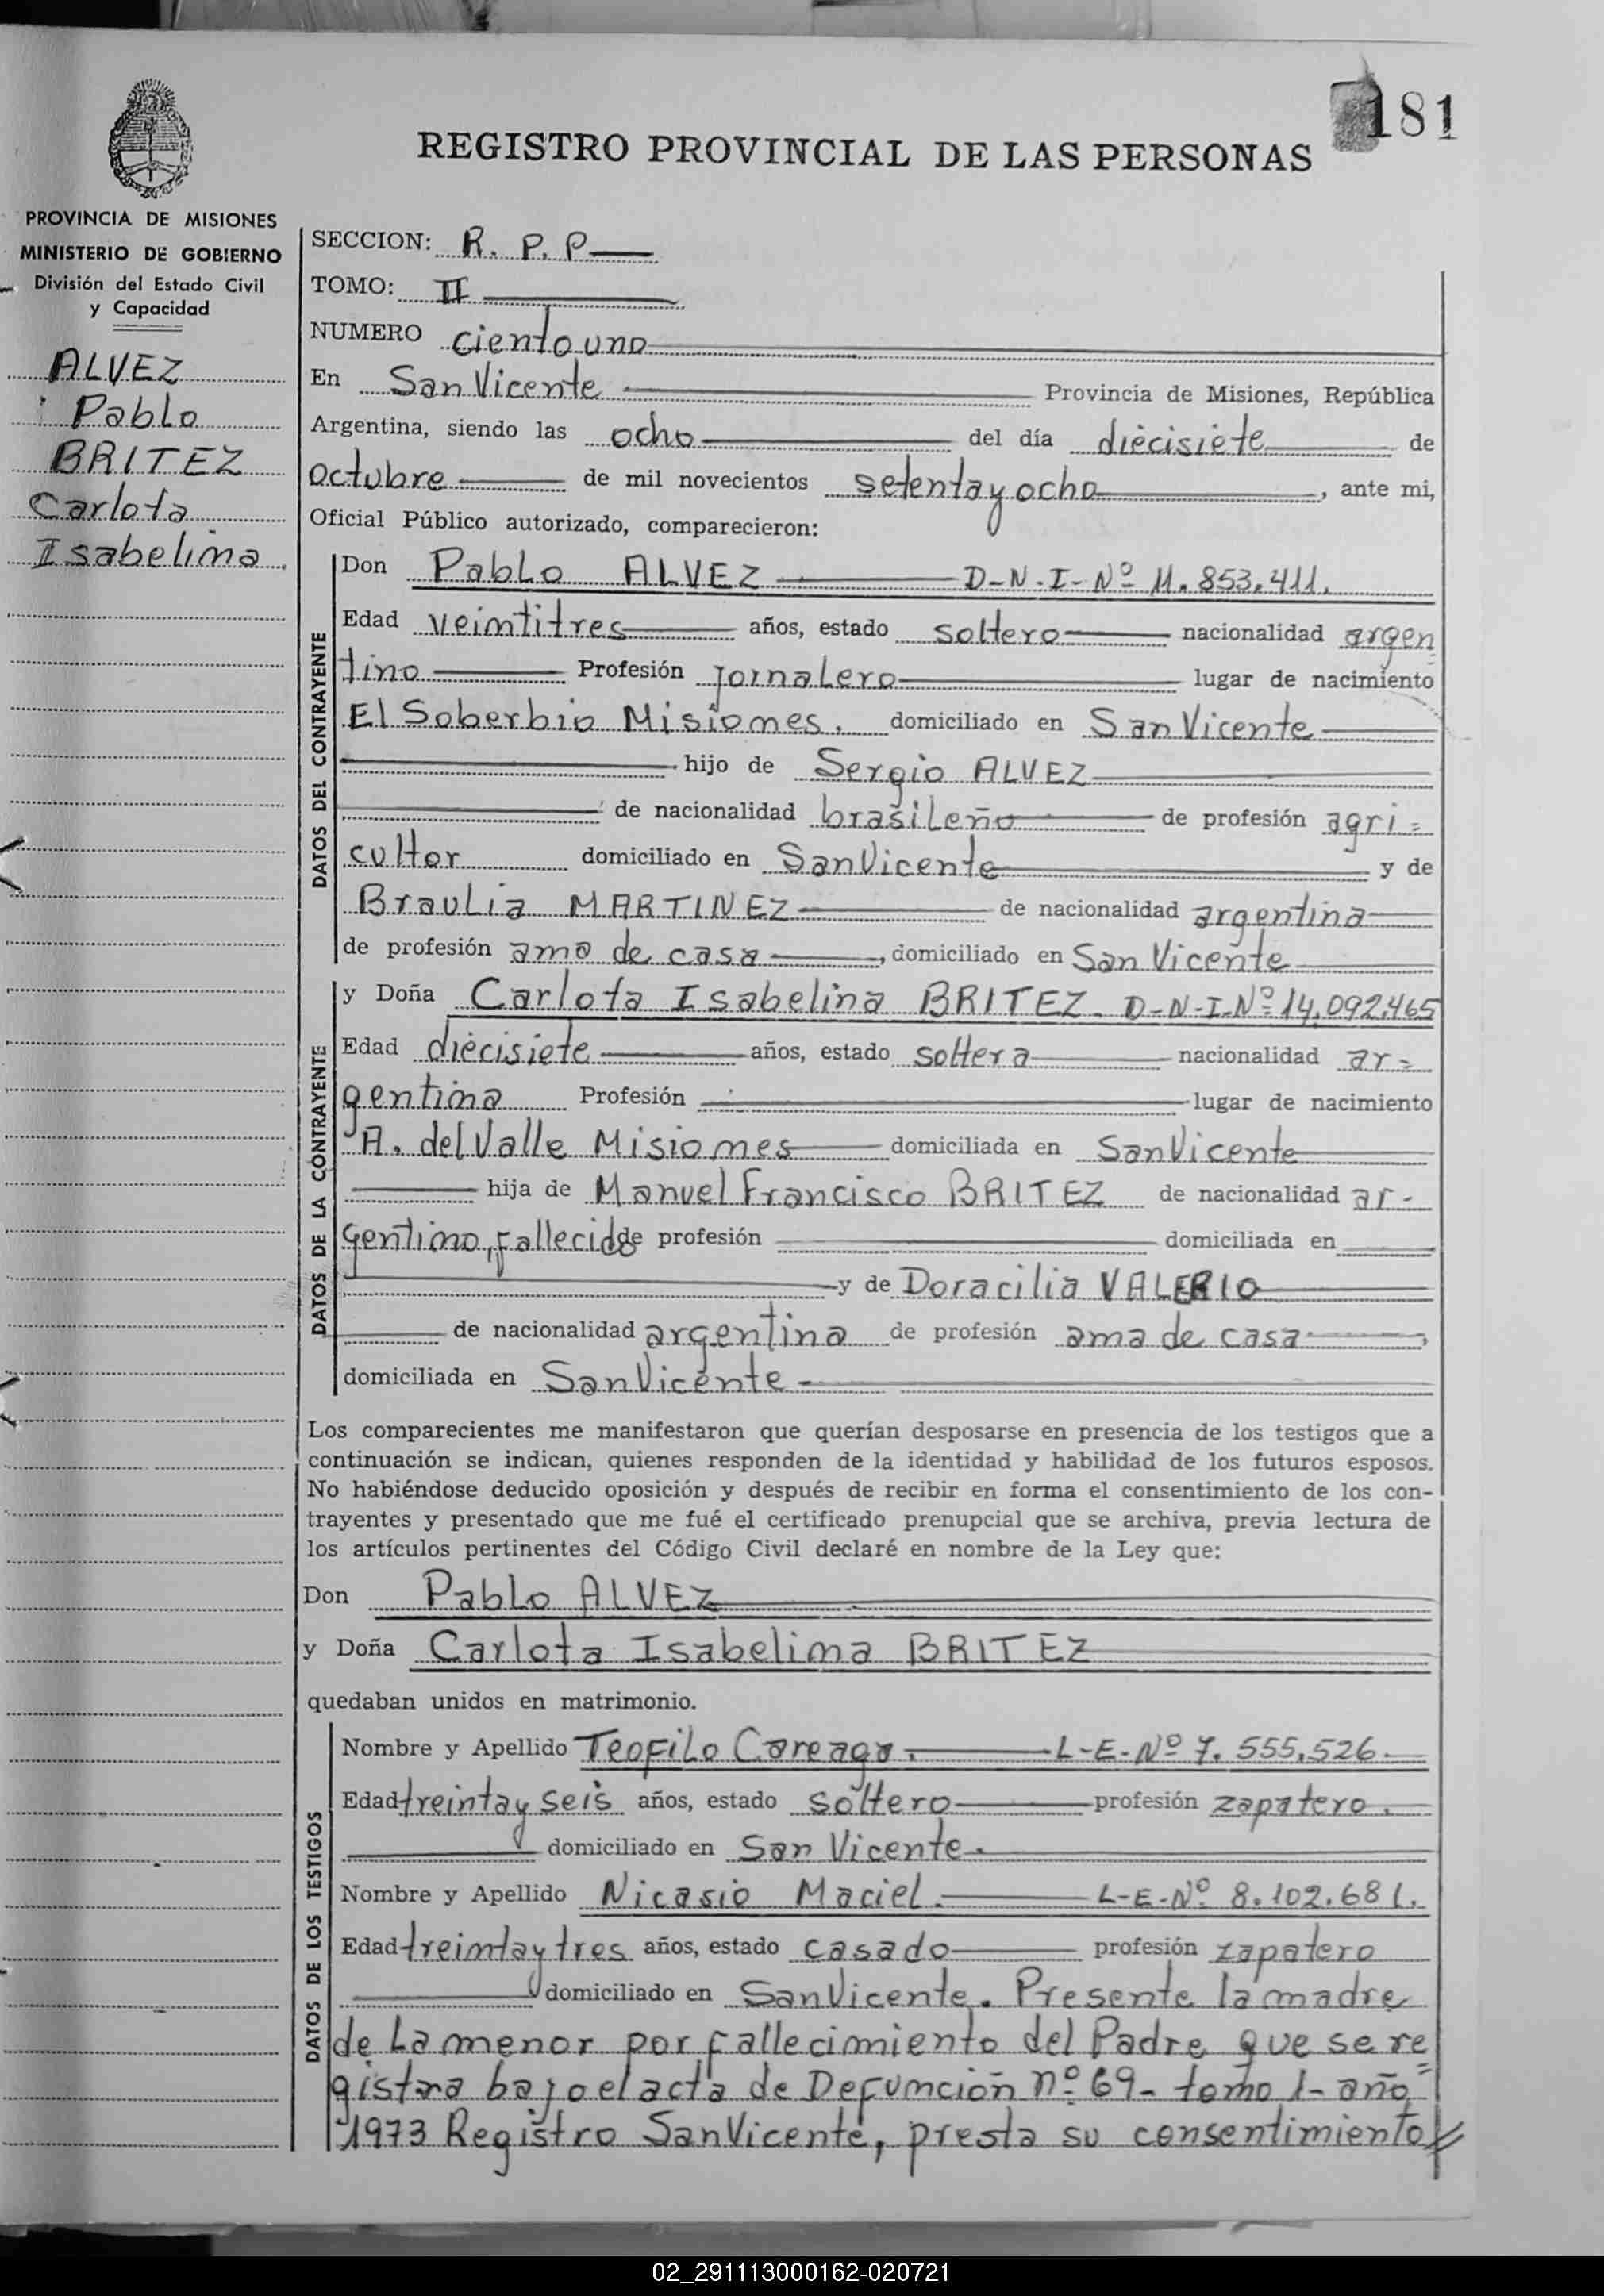 181
REGISTRO PROVINCIAL DE LAS PERSONAS
PROVINCIA DE MISIONES
MINISTERIO DE GOBIERNO
División del Estado Civil
y Capacidad
ALVEZ
Pablo
BRITEZ
Carlota
Isabelina
SECCION: R. P. P
TOMO: II
NUMERO ciento uno
En San Vicente Provincia de Misiones, República
Argentina, siendo las ocho del día diecisiete de
octubre de mil novecientos setenta y ocho, ante mi,
Oficial Público autorizado, comparecieron:
DATOS DEL CONTRAYENTE
Don Pablo ALVEZ D-N-I-Nº 11.853.411.
Edad veintitres años, estado soltero nacionalidad argen
tino Profesión jornalero lugar de nacimiento
El Soberbio Misiones. domiciliado en San Vicente
hijo de Sergio ALVEZ
de nacionalidad brasileño de profesión agri=
cultor domiciliado en San Vicente y de
Braulia MARTINEZ de nacionalidad argentina
de profesión ama de casa, domiciliado en San Vicente
DATOS DE LA CONTRAYENTE
y Doña Carlota Isabelina BRITEZ. D-N-I-Nº 14.092.465
Edad diecisiete años, estado soltera nacionalidad ar=
gentina Profesión lugar de nacimiento
A. del Valle Misiones domiciliada en San Vicente
hija de Manuel Francisco BRITEZ de nacionalidad ar-
gentino, fallecido de profesión domiciliada en
y de Doracilia VALERIO
de nacionalidad argentina de profesión ama de casa,
domiciliada en San Vicente -
Los comparecientes me manifestaron que querían desposarse en presencia de los testigos que a
continuación se indican, quienes responden de la identidad y habilidad de los futuros esposos.
No habiéndose deducido oposición y después de recibir en forma el consentimiento de los con-
trayentes y presentado que me fué el certificado prenupcial que se archiva, previa lectura de
los artículos pertinentes del Código Civil declaré en nombre de la Ley que:
Don Pablo ALVEZ
y Doña Carlota Isabelina BRITEZ
quedaban unidos en matrimonio.
DATOS DE LOS TESTIGOS
Nombre y Apellido Teofilo Careaga. L-E-Nº 7.555.526.
Edad treinta y seis años, estado soltero profesión zapatero.
domiciliado en San Vicente.
Nombre y Apellido Nicasio Maciel. L-E-Nº 8.102.681.
Edad treinta y tres años, estado casado profesión zapatero
domiciliado en San Vicente. Presente la madre
de la menor por fallecimiento del Padre que se re=
gistra bajo el acta de Defunción nº 69- tomo 1- año
1973 Registro San Vicente, presta su consentimiento
02_291113000162-020721